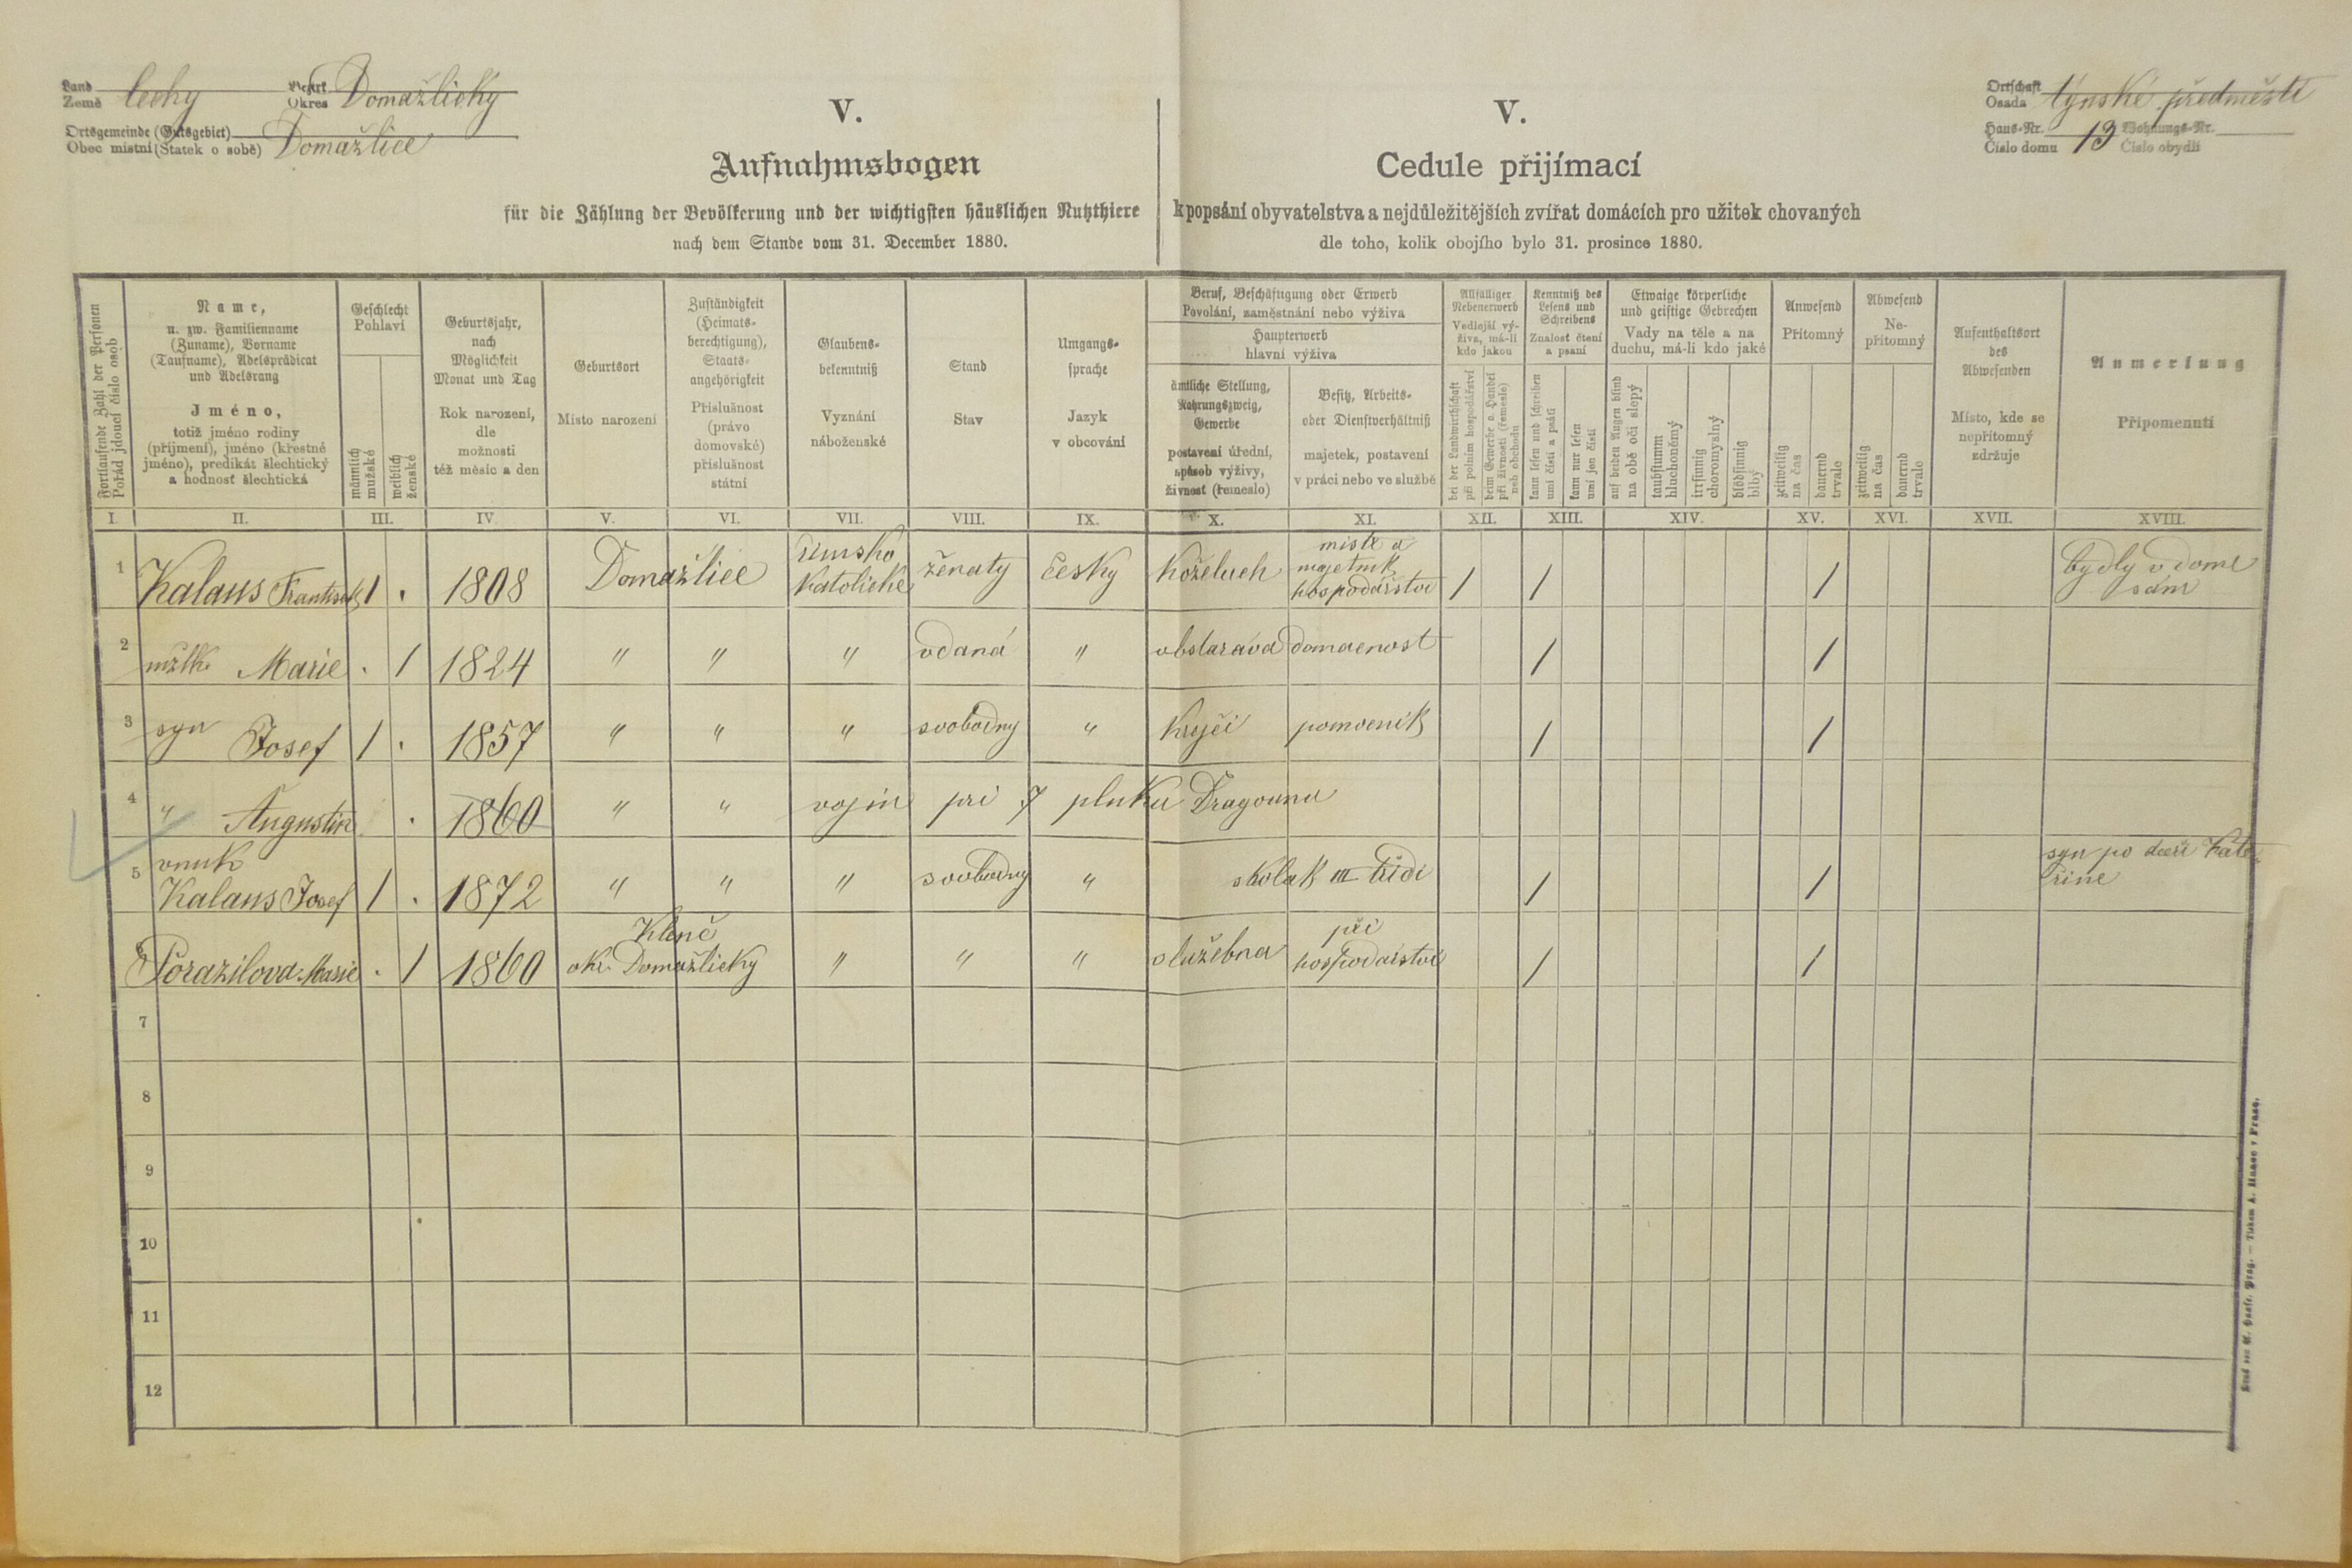 Land
Země Čechy
Bezirk
Okres Domažlický
Ortsgemeinde (Gutsgebiet)
Obec místní (Statek o sobě) Domažlice
V.
Aufnahmsbogen
für die Zählung der Bevölkerung und der wichtigsten häuslichen Nutzthiere
nach dem Stande vom 31. December 1880.
V.
Cedule přijímací
k popsání obyvatelstva a nejdůležitějších zvířat domácích pro užitek chovaných
dle toho, kolik obojího bylo 31. prosince 1880.
Ortschaft
Osada týnské předměstí
Haus-Nr.
Číslo domu 13
Wohnungs-Nr.
Číslo obydlí
Fortlaufende Zahl der Personen
Pořád jdoucí číslo osob
Name,
u. zw. Familienname
(Zuname), Vorname
(Taufname), Adelsprädicat
und Adelsrang
Jméno,
totiž jméno rodiny
(příjmení), jméno (křestné
jméno), predikát šlechtický
a hodnosť šlechtická
Geschlecht
Pohlaví
männlich
mužské
weiblich
ženské
Geburtsjahr,
nach
Möglichkeit
Monat und Tag
Rok narození,
dle
možnosti
též měsíc a den
Geburtsort
Místo narození
Zuständigkeit
(Heimats-
berechtigung),
Staats-
angehörigkeit
Příslušnost
(právo
domovské)
příslušnost
státní
Glaubens-
bekenntniß
Vyznání
náboženské
Stand
Stav
Umgangs-
sprache
Jazyk
v obcování
Beruf, Beschäftigung oder Erwerb
Povolání, zaměstnání nebo výživa
Haupterwerb
hlavní výživa
ämtliche Stellung,
Nahrungszweig,
Gewerbe
postavení úřední,
spůsob výživy,
živnosť (řemeslo)
Besitz, Arbeits-
oder Dienstverhältniß
majetek, postavení
v práci nebo ve službě
Allfälliger
Nebenerwerb
Vedlejší vý-
živa, má-li
kdo jakou
bei der Landwirthschaft
při polním hospodářství
beim Gewerbe o. Handel
při živnosti (řemesle)
neb obchodu
Kenntniß des
Lesens und
Schreibens
Znalost čtení
a psaní
kann lesen und schreiben
umí čísti a psáti
kann nur lesen
umí jen čísti
Etwaige körperliche
und geistige Gebrechen
Vady na těle a na
duchu, má-li kdo jaké
auf beiden Augen blind
na obě oči slepý
taubstumm
hluchoněmý
irrsinnig
choromyslný
blödsinnig
blbý
Anwesend
Přítomný
zeitweilig
na čas
dauernd
trvale
Abwesend
Ne-
přítomný
zeitweilig
na čas
dauernd
trvale
Aufenthaltsort
des
Abwesenden
Místo, kde se
nepřítomný
zdržuje
Anmerkung
Připomenutí
I. II. III. IV. V. VI. VII. VIII. IX. X. XI. XII. XIII. XIV. XV. XVI. XVII. XVIII.
1 Kalaus František 1 . 1808 Domažlice římsko katolické ženatý česky koželuch mistr a majetník hospodářství / / / bydlý v domě sám
2 Marie . 1 1824 " " " vdaná " obstarává domácnost / /
3 syn Josef 1 . 1857 " " " svobodný " krejčí pomocník / /
4 " Augustin . 1860 " " vojín při 7 pluku Dragounů
5 vnuk Kalaus Josef 1 . 1872 " " " svobodný " školák III třídí / / syn po dceři Kateřině
6 Porazilova Marie . 1 1860 Klenč okr. Domažlický " " " služebná při hospodářství / /
7
8
9
10
11
12